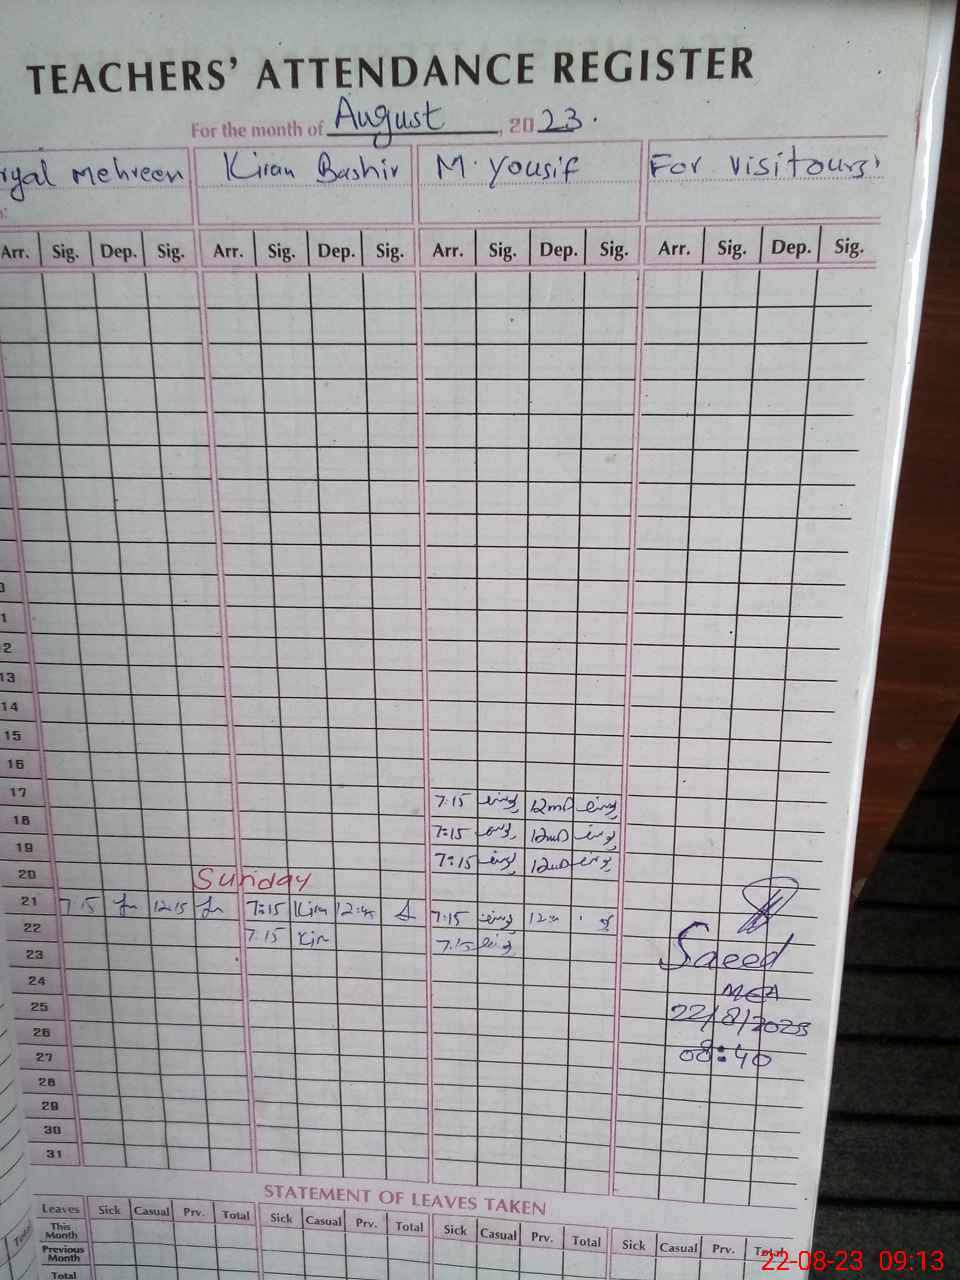 TEACHERS' ATTENDANCE REGISTER
For the month of August, 2023.
ryal Mehreen Kiran Bashir M. Yousif For visitours'
Arr. Sig. Dep. Sig. Arr. Sig. Dep. Sig. Arr. Sig. Dep. Sig. Arr. Sig. Dep. Sig.
3
1
2
13
14
15
16
17 7:15
18 7:15
19 7:15
20 Sunday
21 7 15 12:15 7:15 Kiran 7:15
22 7:15 Kir 7:15
23 Saeed
24 MEA
25 22/8/2023
26
27 08:40
28
29
30
31
STATEMENT OF LEAVES TAKEN
Leaves Sick Casual Prv. Total Sick Casual Prv. Total Sick Casual Prv. Total Sick Casual Prv. Total
This Month
Previous Month
Total
Total
22-08-23 09:13